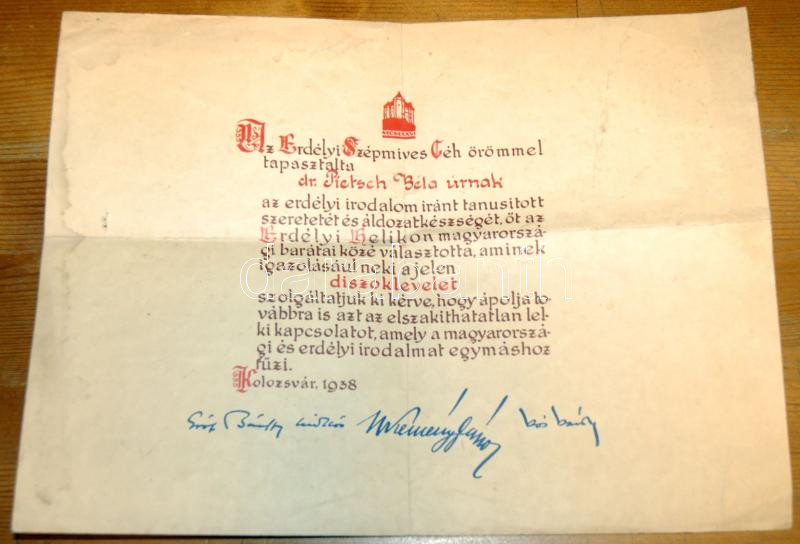 MCMXXXV
Az Erdélyi Szépmives Céh örömmel
tapasztalta
dr. Pietsch Béla úrnak
az erdélyi irodalom iránt tanusitott
szeretetét és áldozatkészségét, őt az
Erdélyi Helikon magyarorszá-
gi barátai közé választotta, aminek
igazolásául neki a jelen
diszoklevelet
szolgáltatjuk ki kérve, hogy ápolja to-
vábbra is azt az elszakithatatlan lel-
ki kapcsolatot, amely a magyarorszá-
gi és erdélyi irodalmat egymáshoz
fűzi.
Kolozsvár, 1938
Gróf Bánffy Miklós Kemény János Kós Károly